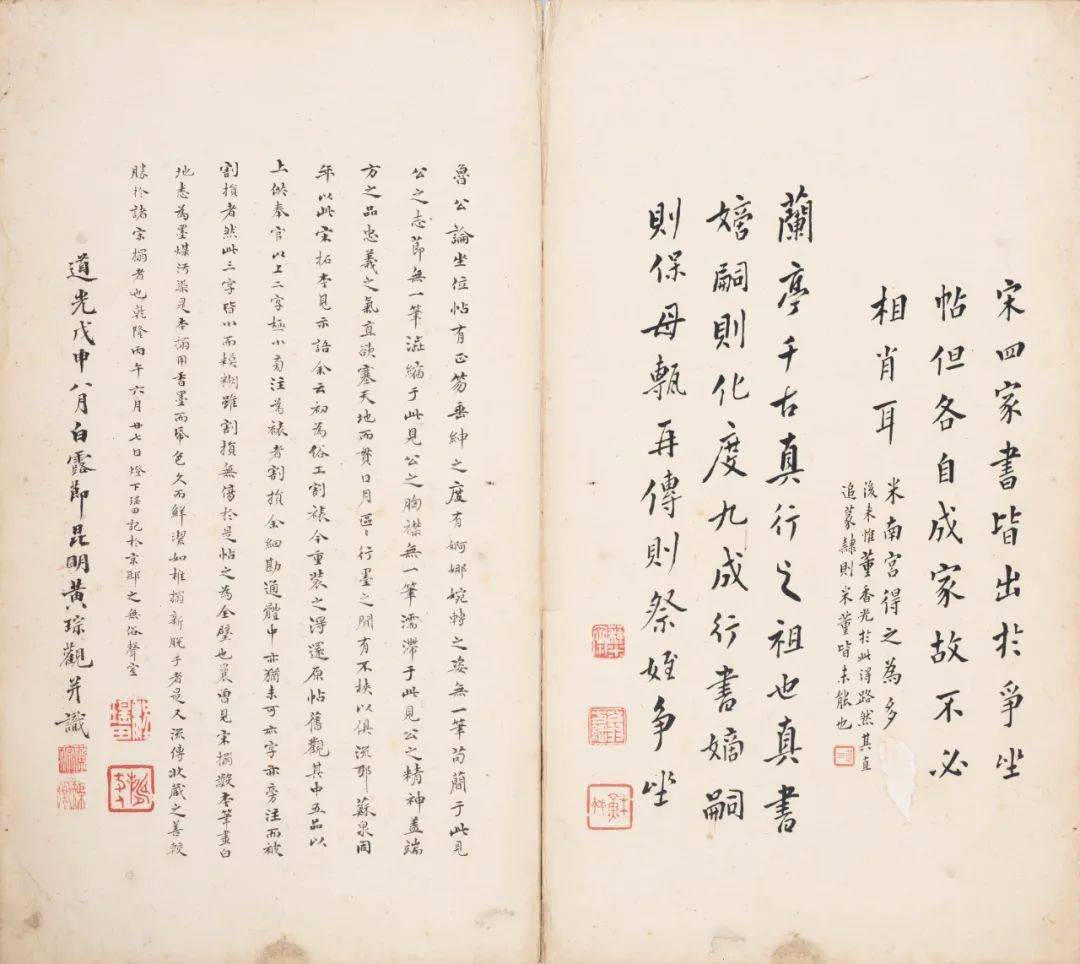 宋四家書皆出於爭坐
帖但各自成家故不必
相肖耳
米南宮得之為多
後來惟董香光於此得路然其直
追篆隸則米董皆未能也
蘭亭千古真行之祖也真書
嫡嗣則化度九成行書嫡嗣
則保母甎再傳則祭姪争坐
魯公論坐位帖有正笏垂紳之度有婀娜婉轉之姿無一筆苟簡于此見
公之志節無一筆澁縮于此見公之胸襟無一筆濡滯于此見公之精神蓋端
方之品忠義之氣直欲塞天地而貫日月區〻行墨之間有不挾以俱流耶蘇泉同
年以此宋拓本見示語余云初為俗工割裱今重裝之得還原帖舊觀其中五品以
上供奉官以上二字極小旁注為裱者割損余細勘通體中亦獨未可亦字亦旁注而被
割損者然此三字皆小而模糊雖割損無傷於是帖之為全璧也曩曾見宋搨數本筆畫白
地悉為墨煤污染是本搨用香墨而帋色久而鮮潔如椎搨新脫手者是又流傳收藏之善較
勝於諸宗搨者也乾隆丙午六月廿七日燈下瑤田記於京邸之無俗聲室
道光戊申八月白露節昆明黃琮觀并識